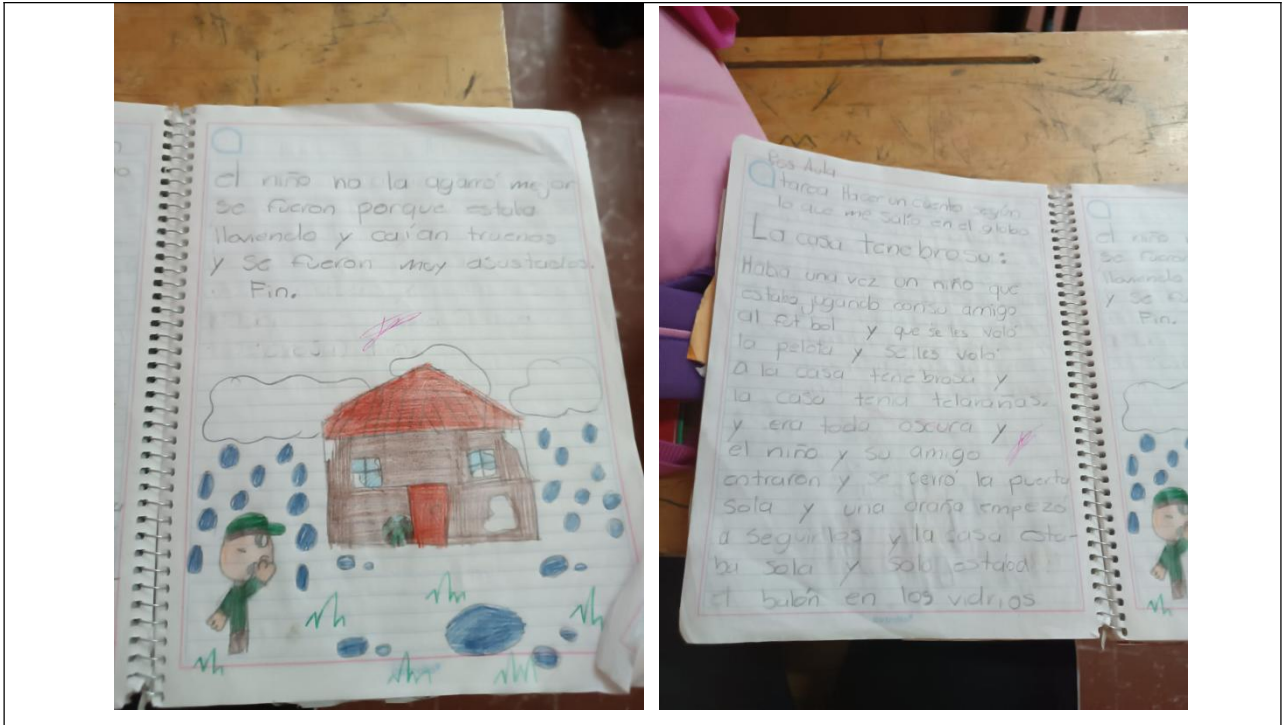 el niño no la agarró mejor
se fueron porque estaba
lloviendo y caían truenos
y se fueron muy asustados.
Fin.
Pos Aula
tarea Hacer un cuento según
lo que me salio en el globo
La casa tenebrosa:
Habia una vez un niño que
estaba jugando con su amigo
al fut bol y que se les voló
la pelota y se les voló
a la casa tenebrosa y
la casa tenia telarañas.
y era toda oscura y
el niño y su amigo
entraron y se cerró la puerta
sola y una araña empezo
a seguirlos y la casa esta-
ba sola y solo estaba
el balón en los vidrios
el niño
se fueron
lloviendo
y se
Fin.